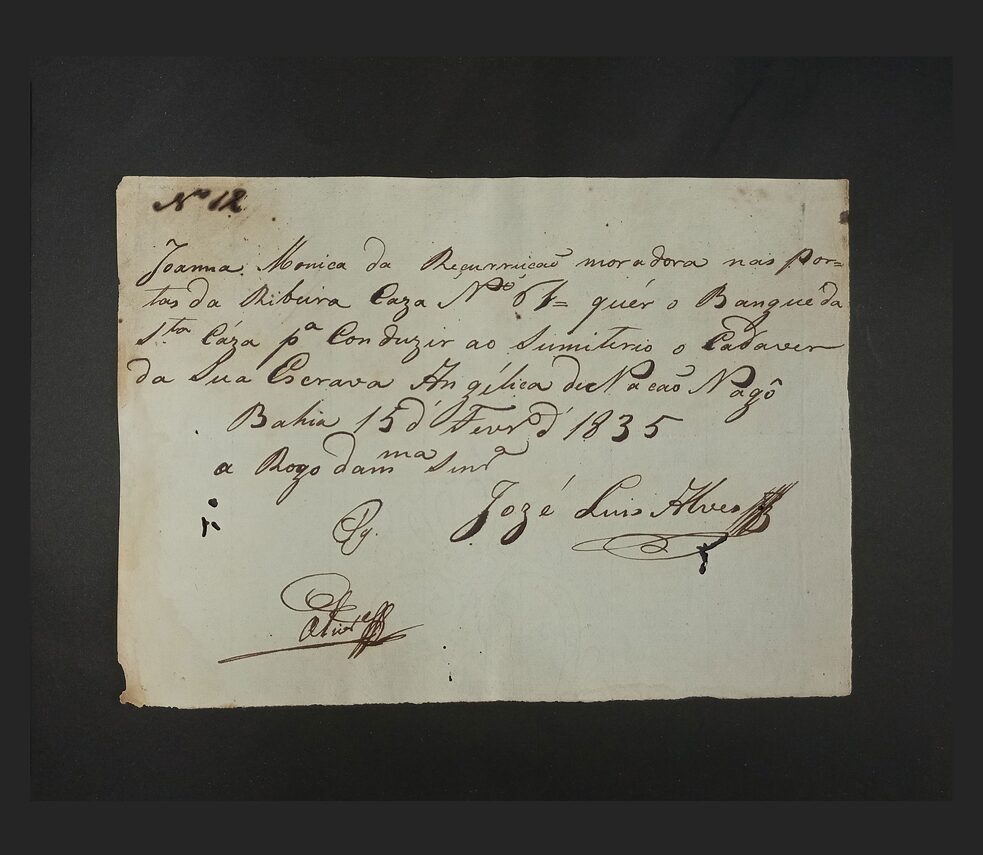 Nº 12
Joanna Monica da Reçurruicaõ moradora nas Por=
tas da Ribeira Caza Nº 61= quér o Bangué da
Sta Cáza pa Conduzir ao Sumiterio o Cadaver
da Sua Escrava Angélica de Nacaõ Nagô
Bahia 15 d' Fevrº d' 1835
a Rogo da mma Snrª
Jozé Luis Alves
Pg.